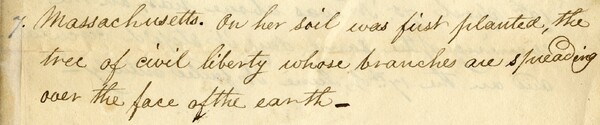 7. Massachusetts. On her soil was first planted, the
tree of civil liberty whose branches are spreading
over the face of the earth —